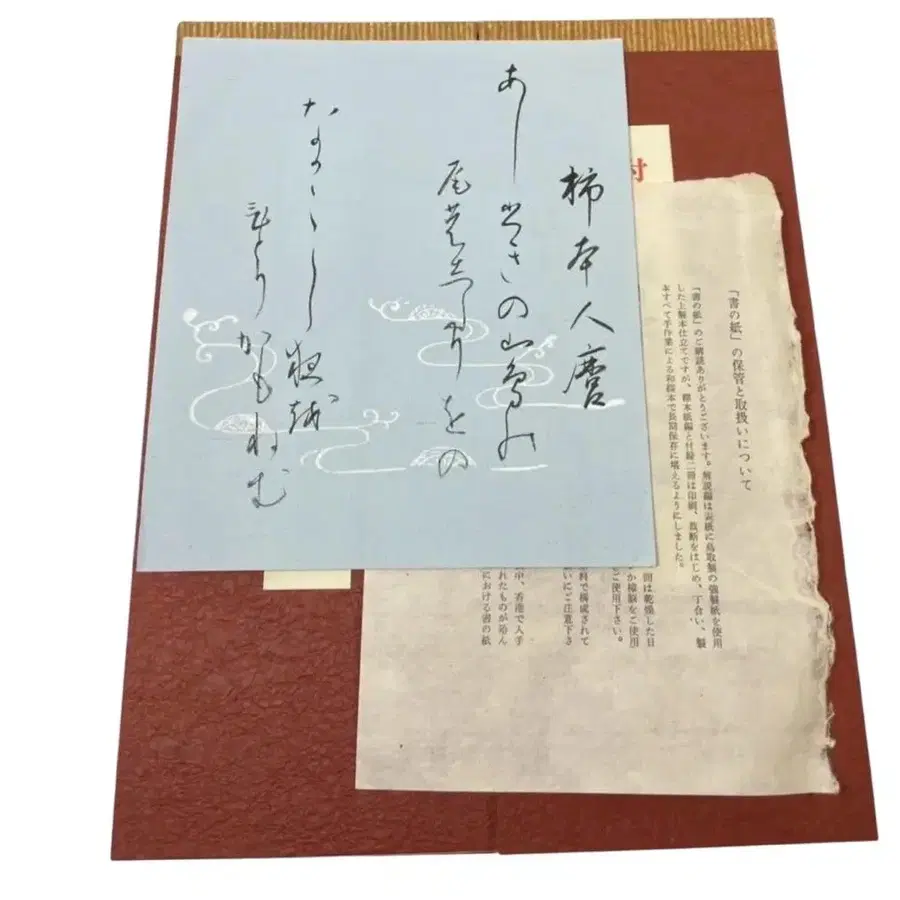 柿本人麿
あしひきの山鳥の
尾のしたりをの
なか〱し夜越
ひとりかもねむ
付
「書の紙」の保管と取扱いについて
「書の紙」のご購読ありがとうございます。解説編は表紙に鳥取製の強製紙を使用
した上製本仕立てですが、標本紙編と付録二冊は印刷、裁断をはじめ、丁合い、製
本すべて手作業による和綴本で長期保存に堪えるようにしました。
間は乾燥した日
か樟脳をご使用
ご使用下さい。
料で構成されて
いにご注意下さ
中、香港で入手
れたものが殆ん
における書の紙